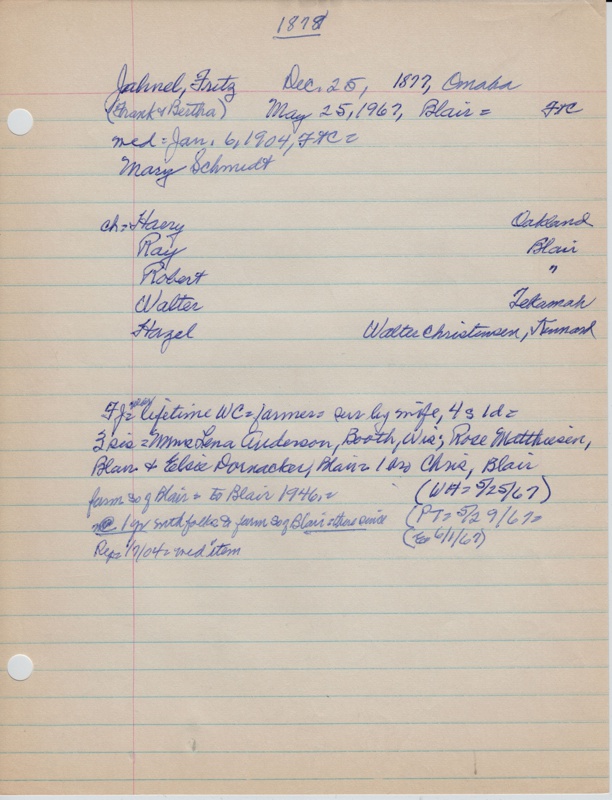 1878
Jahnel, Fritz Dec. 25, 1877, Omaha
(Frank & Bertha) May 25, 1967, Blair = FtC
med = Jan. 6, 1904, FtC =
Mary Schmidt
ch = Harry Oakland
Ray Blair
Robert "
Walter Tekamah
Hazel Walter Christensen, Kennard
lifetime WC = farmer = sur by wife, 4 s 1 d =
3 sis = Mmes Lena Anderson, Booth, Wis; Rose Matthiesen,
Blair & Elsie Dornacker, Blair = 1 bro Chris, Blair
farm so of Blair = to Blair 1946 = (WH = 5/25/67)
1 yr with folks & farm so of Blair = there since (PT = 5/29/67 =
Rep = 1/7/04 = wed item (En 6/1/67)